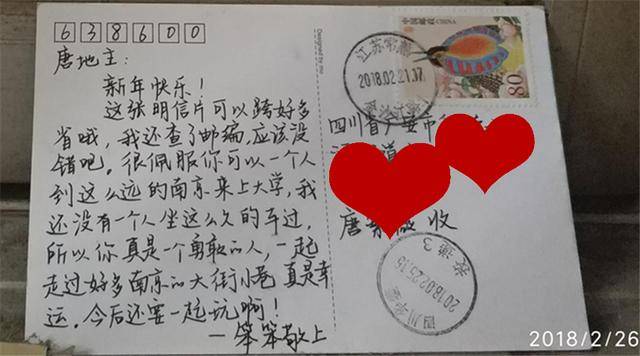 638600
唐地主：
新年快乐！
这张明信片可以跨好多
省哦，我还查了邮编，应该没
错吧。很佩服你可以一个人
到这么远的南京来上大学，我
还没有一个人坐这么久的车过，
所以你真是一个勇敢的人，一起
走过好多南京的大街小巷真是幸
运。今后还要一起玩啊！
—笨笨敬上
Designed by me
江苏
2018.02.21.17
中国邮政 CHINA
80
四川省广安市
唐 收
四川
2018.02.25.15
投递3
2018/2/26